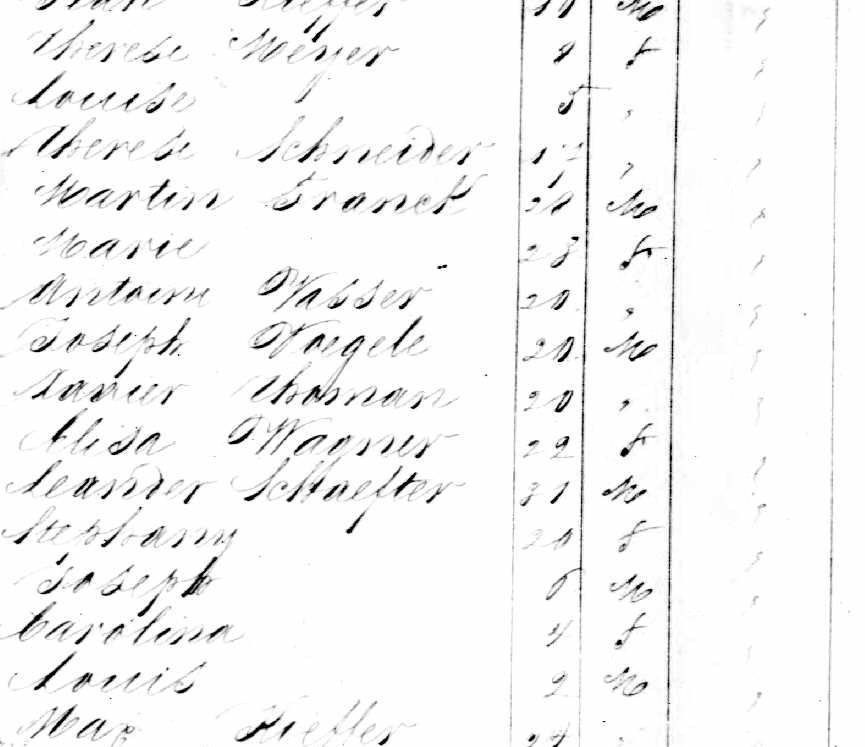 Kieffer M
Therese Meyer 8 f
Louise 5 "
Therese Schneider 17 "
Martin Franck 28 M
Marie 28 f
Antoine Vasser 20 "
Joseph Voegele 20 M
Xavier Thoman 20 "
Elisa Wagner 22 f
Leander Schaefter 31 M
Stephany 20 f
Joseph 6 M
Carolina 4 f
Louis 2 M
Max Kieffer 24 "